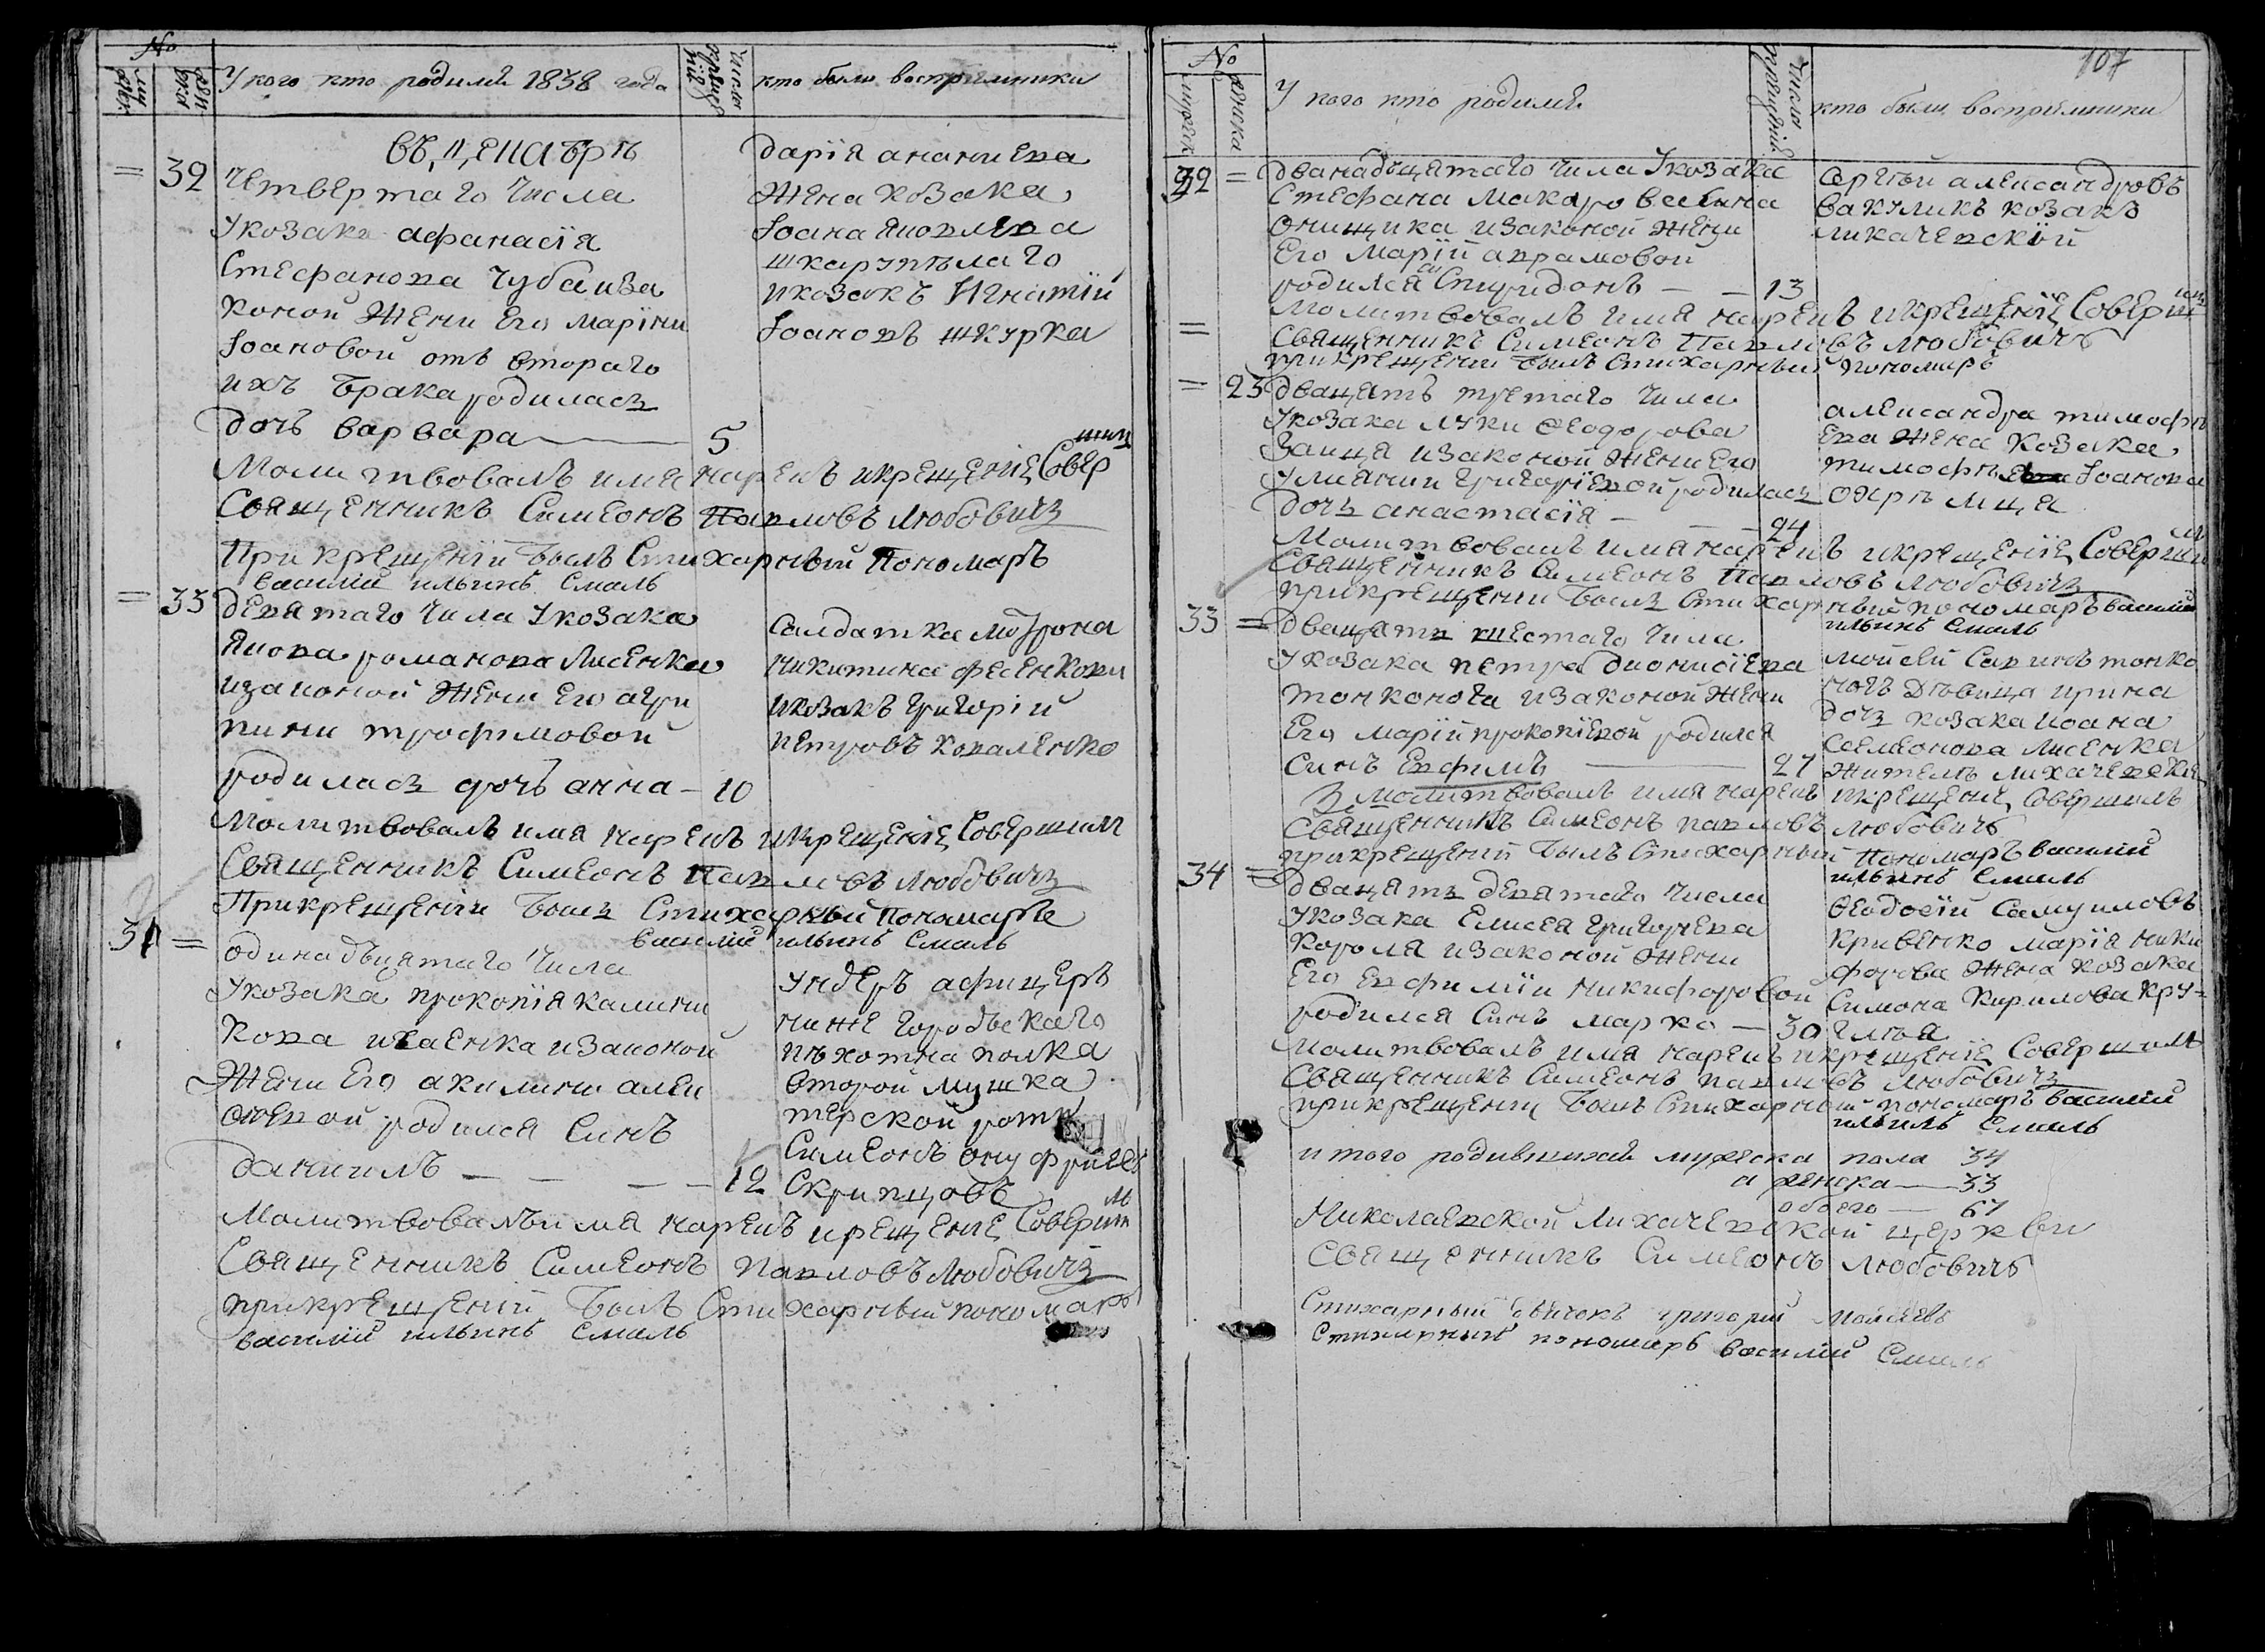 No
муж
жен
ска
У кого кто родилей 1838 года
число
крещен
ній
кто были восприемники
Въ
= 32
четвертаго числа
у козака афанасія
Стефанова Чуба иза
коной жени Его марїни
Іоановой отъ втораго
ихъ брака родилась
дочъ варвара — 5
дарїя ананиева
жена козака
Іоана яковлева
и козакъ Игнатїй
Іоановъ шкурка
Молитвовалъ имя нарекъ и крещениЕ Совер
шилъ
Священникъ Симеонъ Павловъ Любовичъ
При крещенїи былъ Стихарный Пономаръ
василий ильинъ Смаль
= 33
девятаго числа у козака
якова романова Лисенка
изаконой жени Его агри
пини трофимовой
родилась дочъ анна — 10
Салдатка мотрона
никитина фесенкова
и козакъ григорій
петровъ коваленко
Молитвовалъ имя нарекъ и крещениЕ Совершилъ
Священникъ Симеонъ Павловъ Любовичъ
При крещенїи былъ Стихарный Пономаръ
василий ильинъ Смаль
31 =
одинадъцятаго числа
у козака прокопїя калини
кова изаконой
жени Его акилини алек
родился Синъ
даниилъ — — — 12
ундеръ афицеръ
ниже городъскаго
пѣхотна полка
второй мушка
терской роти
Симеонъ онуфриев
Скрипцовъ
Молитвовалъ имя нарекъ и крещениЕ Соверши
лъ
Священникъ Симеонъ Павловъ Любовичъ
при крещенїи былъ Стихарный пономаръ
василий ильинъ Смаль
107
No
мужеск
женска
У кого кто родился
число
крещений
кто были восприемники
32 =
дванадъцятаго числа у козака
Стефана Макарова сина
Онищика изаконой жени
Его Марїй аврамовой
родился Спиридонъ — — 13
си
Сергей александровъ
вакуликъ козакъ
лихачевский
Молитвовалъ имя нарекъ и крещенїе Соверши
=
Священникъ Симеонъ Павловъ Любовичъ
при крещении былъ Стихарный пономаръ
= 23
двацять третаго числа
у козака луки Феодорова
Заиця изаконой жени Его
улияни григориевой родилась
дочъ анастасїя — — — 24
александра тимофѣ
ева жена козака
тимофѣ Іоанова
Молитвовалъ имя нарекъ и крещенїе Соверши
Священникъ Симеонъ Павловъ Любовичъ
при крещении былъ Стихарный пономаръ василий
ильинъ Смаль
33 =
двацять шестаго числа
у козака петра дионисїева
тонконога изаконой жени
Его марїй прокопїевой родился
Синъ Евфимъ — 27
мойсей Савинъ тонко
ногъ дѣвица ирина
дочъ козака иоана
Семеонова лисенка
жители лихачевские
молитвовалъ имя нарекъ и крещение совершилъ
Священникъ Симеонъ павловъ Любовичъ
при крещений былъ Стихарный Пономаръ василий
ильинъ Смаль
34 =
двацять девятаго числа
у козака Елисея григориева
Короля изаконой жени
Его Евфимїи никифоровой
родился Синъ Марко — 30
Феодосїй Самуиловъ
кривенко марїя ники
форова жена козака
Симона Кирилова кру=
гляя
Молитвовалъ имя нарекъ и крещенїе Совершилъ
Священникъ Симеонъ павловъ Любовичъ
при крещении былъ Стихарный пономаръ василий
ильинъ Смаль
итого родившихся мужеска пола 34
а женска — 33
обоего — 67
Николаевской Лихачевской церкви
Священникъ Симеонъ Любовичъ
Стихарный дьячокъ григорий
Стихарный пономаръ василий Смаль